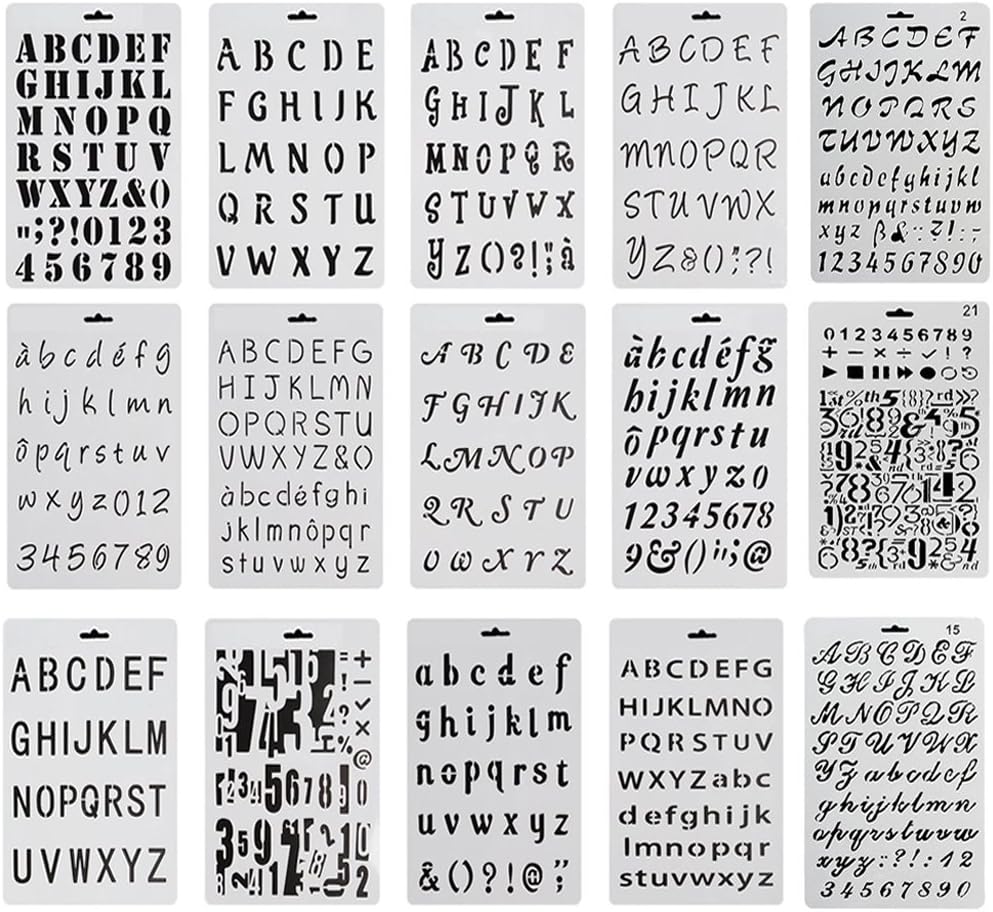 ABCDEF
GHIJKL
MNOPQ
RSTUV
WXYZ&()
";?!0123
456789
ABCDE
FGHIJK
LMNOP
QRSTU
VWXYZ
ABCDEF
GHIJKL
MNOPQR
STUVWX
YZ()?!;"à
ABCDEF
GHIJKL
MNOPQR
STUVWX
YZ&();"?!
2
ABCDEF
GHIJKLM
NOPQRS
TUVWXYZ
abcdefghijkl
mnopqrstuvw
xyz ß&:?!:;
1234567890
àbcdéfg
hijklmn
ôpqrstuv
wxyz012
3456789
ABCDEFG
HIJKLMN
OPQRSTU
VWXYZ&O
àbcdéfghi
jklmnôpqr
stuvwxyz
ABCDE
FGHIJK
LMNOP
QRSTU
VWXYZ
àbcdéfg
hijklmn
ôpqrstu
vwxyz0
12345678
9&()";@
21
0123456789
+−×÷✓!?
ABCDEF
GHIJKLM
NOPQRST
UVWXYZ
abcdef
ghijklm
nopqrst
uvwxyz
&()?!@;"
ABCDEFG
HIJKLMNO
PQRSTUV
WXYZabc
defghijk
lmnopqr
stuvwxyz
15
ABCDEF
GHIJKL
MNOPQR
STUVWX
YZabcdef
ghijklmn
opqrstuvw
xyz:?!:12
34567890